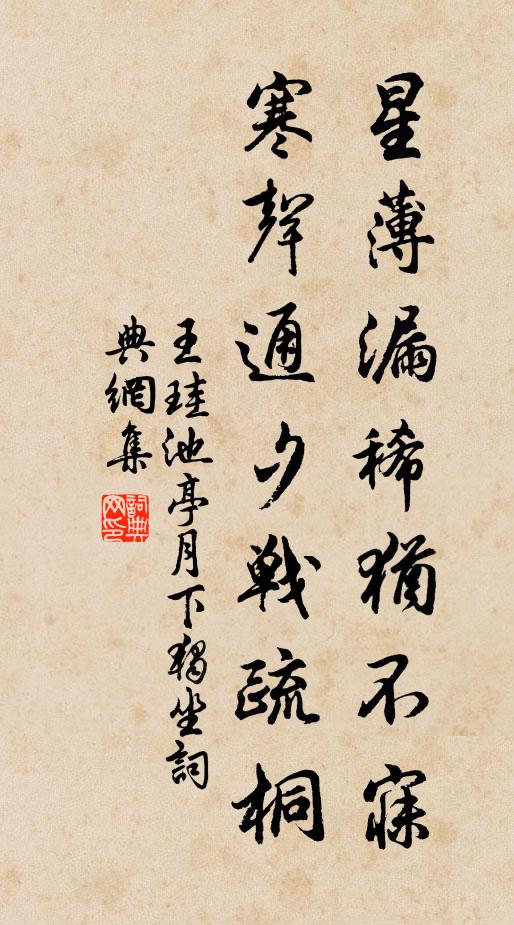 星薄漏稀猶不寐
寒聲通夕戰疏桐
王珪池亭月下獨坐詞
典網集
詞典
网印